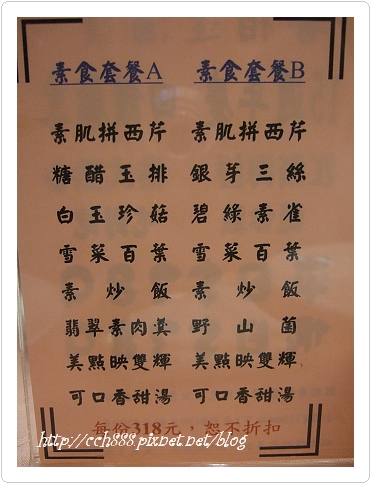 素食套餐A 素食套餐B
素肌拼西芹 素肌拼西芹
糖醋玉排 銀芽三絲
白玉珍菇 碧綠素雀
雪菜百葉 雪菜百葉
素炒飯 素炒飯
翡翠素肉羹 野山菌
美點映雙輝 美點映雙輝
可口香甜湯 可口香甜湯
每份318元，恕不折扣
http://cch888.pixnet.net/blog